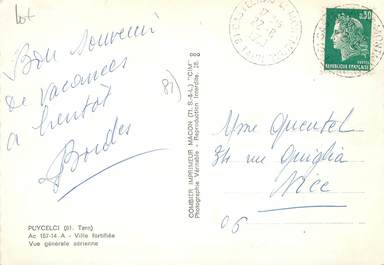 lot
Bon souvenir
de vacances
a bientot
Bordes
81)
PUYCELCI (81. Tarn)
Ac 157-14 A - Ville fortifiée
Vue générale aérienne
COMBIER IMPRIMEUR MACON (71. S.-&-L.) "CIM"
Photographie Véritable - Reproduction Interdite. 28
0,30
REPUBLIQUE FRANÇAISE
Mme Quentel
34 rue
Nice
06